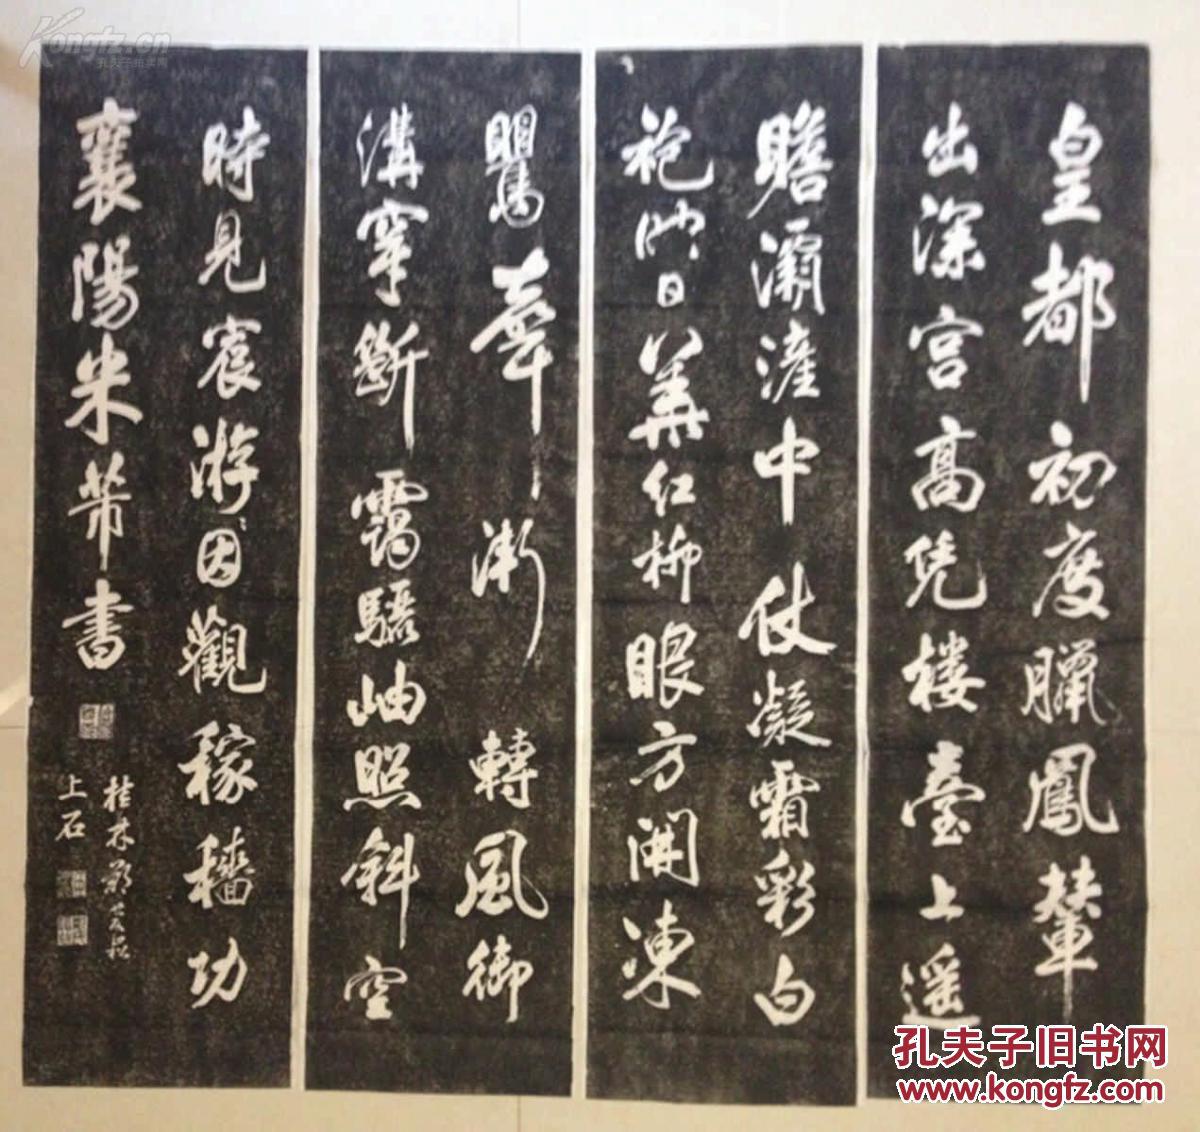 皇都初度臘鳳輦
出深宫高凭楼臺上遥
瞻灞滻中仗凝霜彩白
袍映日華紅柳眼方開凍
鸎聲漸轉風御
溝穿斷靄驪岫照斜空
時見宸游因觀稼穡功
襄陽米芾書
桂林
上石
Kongfz.cn
孔夫子拍卖网
孔夫子旧书网
www.kongfz.com